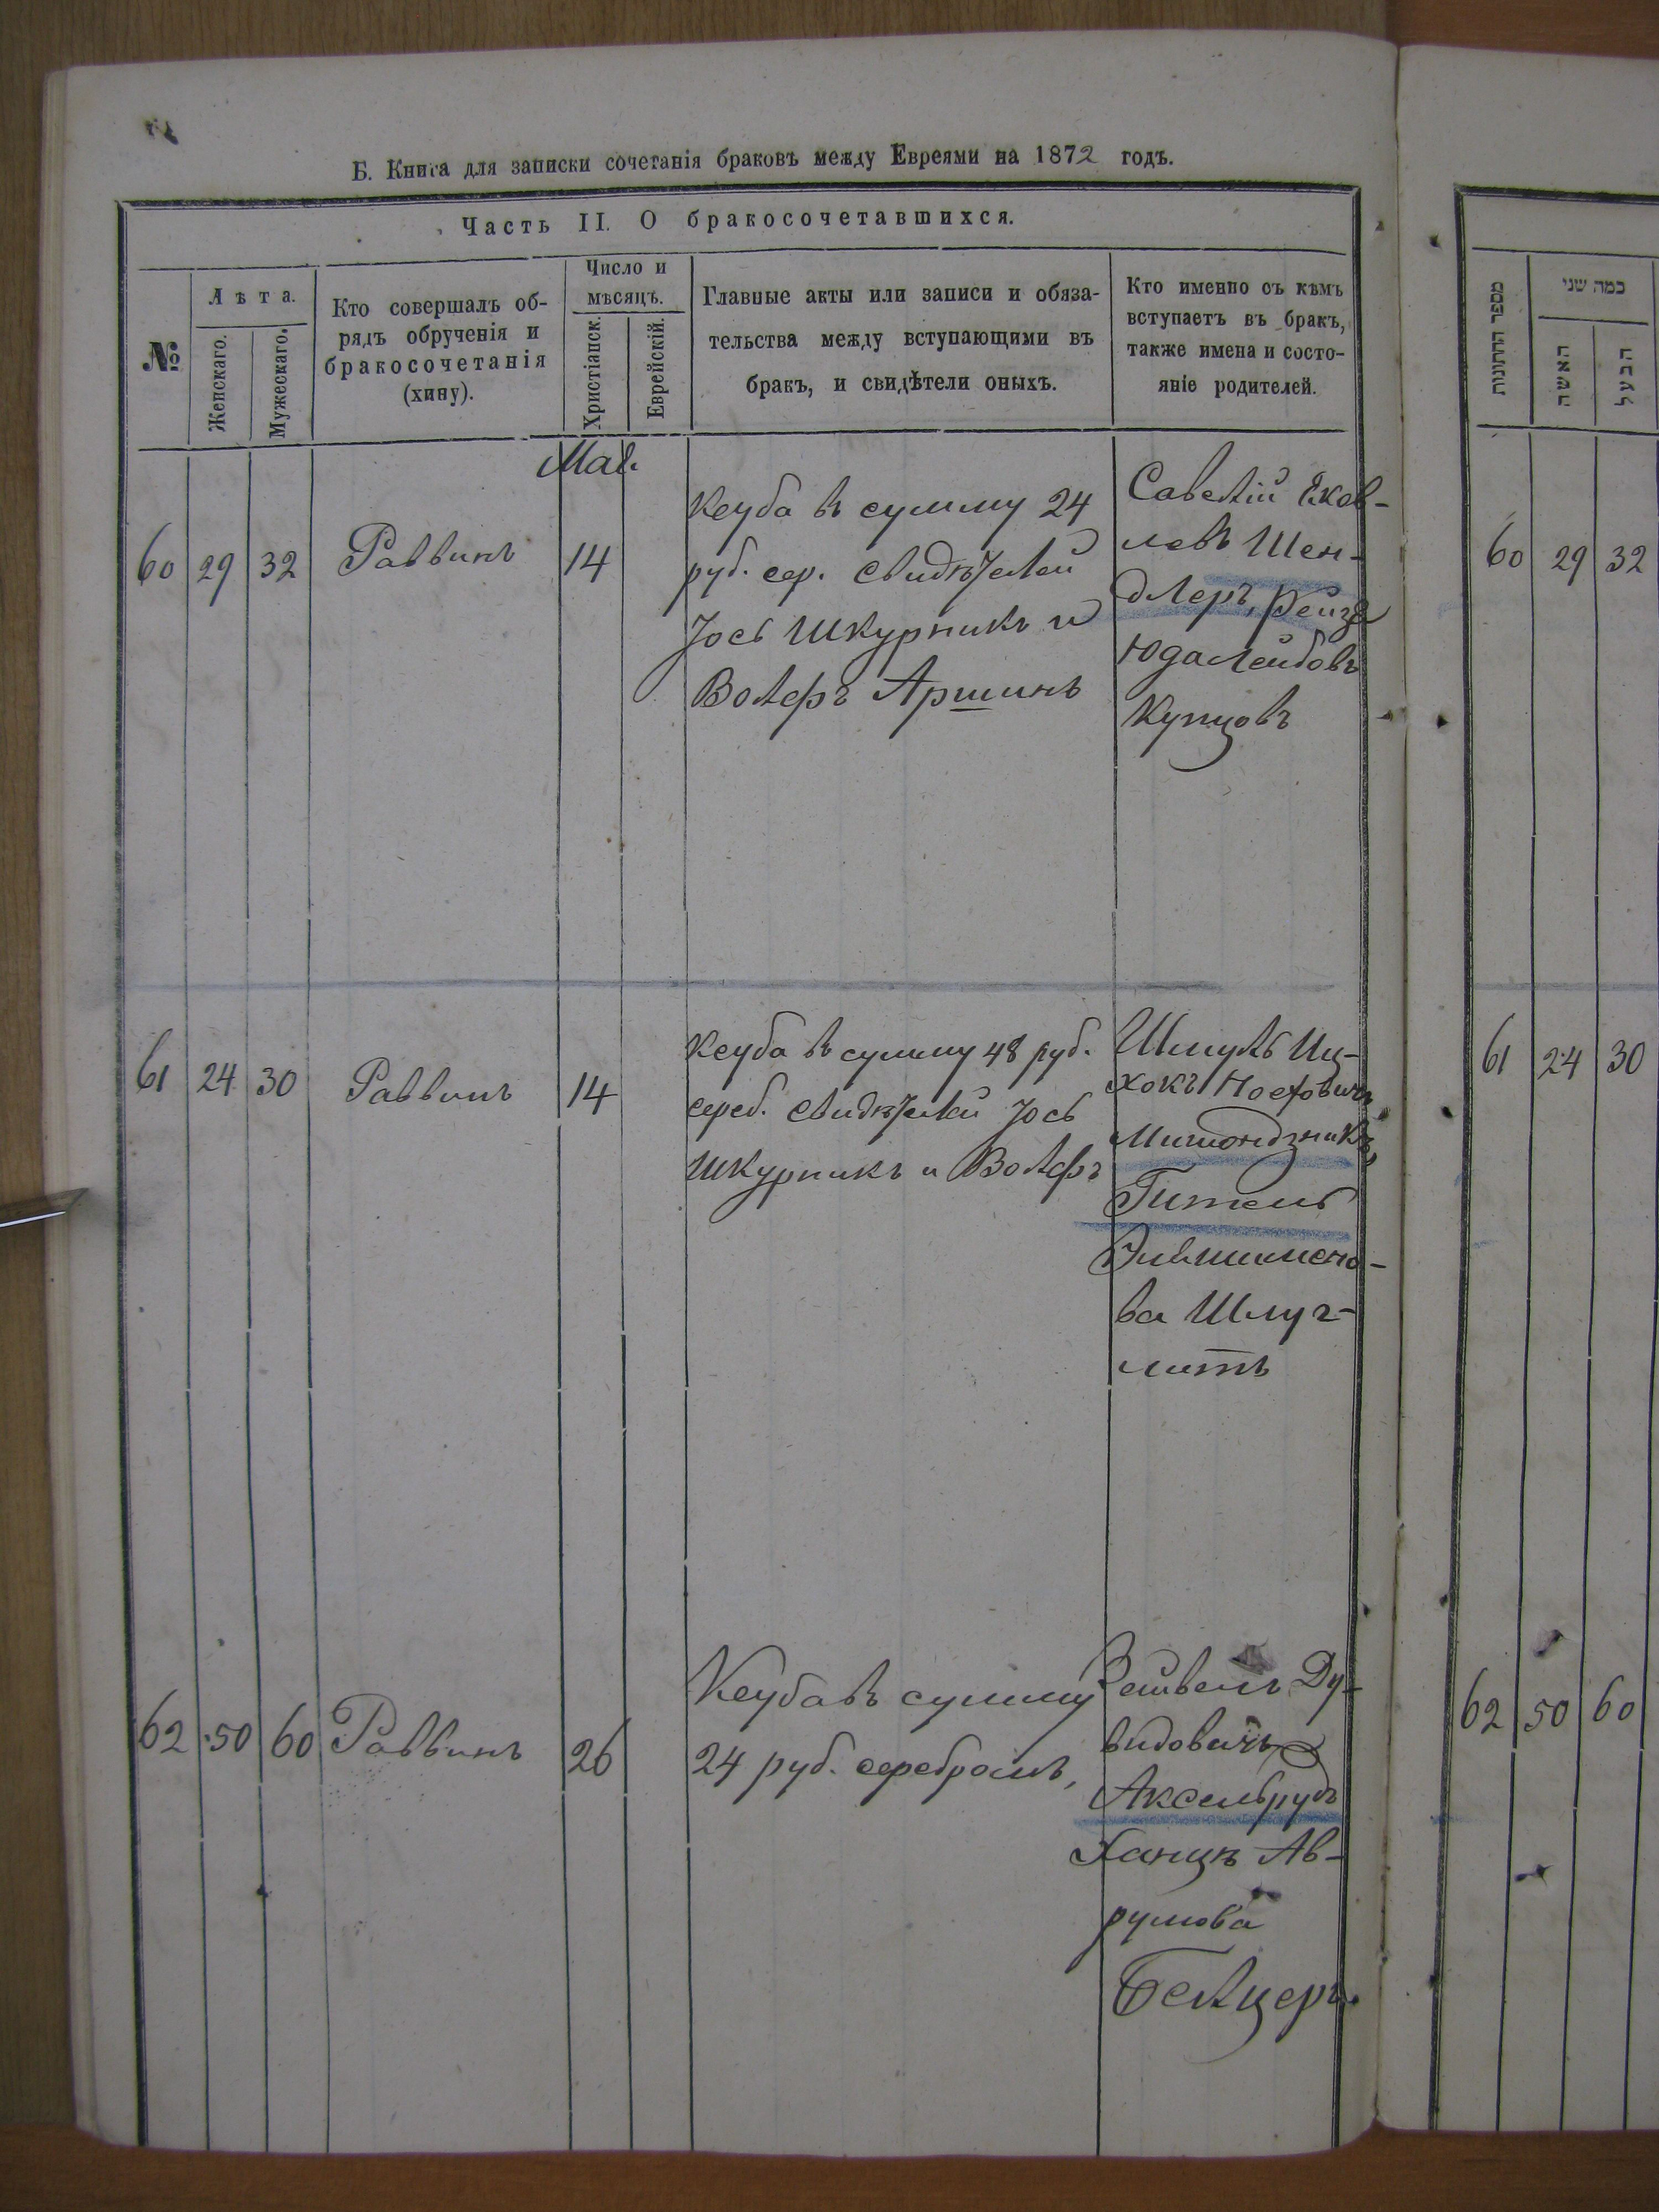 Б. Книга для записки сочетанія браковъ между Евреями на 1872 годъ.
Часть II. О бракосочетавшихся.
№
Лѣта.
Женскаго.
Мужескаго.
Кто совершалъ об-
рядъ обрученія и
бракосочетанія
(хипу).
Число и
мѣсяцъ.
Христіанск.
Еврейскій.
Главные акты или записи и обяза-
тельства между вступающими въ
бракъ, и свидѣтели оныхъ.
Кто именно съ кѣмъ
вступаетъ въ бракъ,
также имена и состо-
яніе родителей.
Маі.
60 29 32 Раввинъ 14
Кеуба въ сумму 24
руб. сер. свидѣтелей
Іось Шкурникъ и
Волефъ Аршинъ
Савелій Яков-
левъ Шен-
длеръ, Рейза
Юдалейбовъ
Купцовъ
61 24 30 Раввинъ 14
Кеуба въ сумму 48 руб.
сереб. свидѣтелей Іось
Шкурникъ и Волефъ
Шмуль Иц-
хокъ
Гитель
ва
62 50 60 Раввинъ 26
Кеуба въ сумму
24 руб. серебромъ,
Зейвель Ду-
видовичъ
Аксельрудъ
Ханцѣ Ав-
румова
Бельцеръ.
מספר החתונות
כמה שני
האשה
הבעל
60 29 32
61 24 30
62 50 60